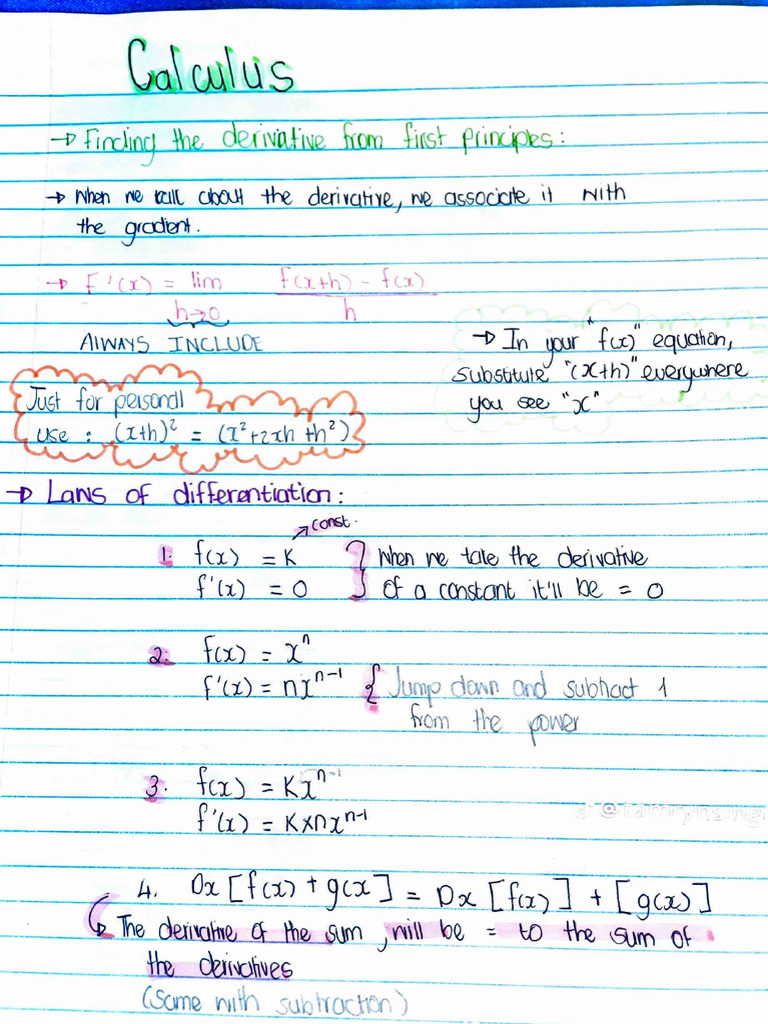 Calculus
→ Finding the derivative from first principles:
→ When we talk about the derivative, we associate it with
the gradient.
→ F'(x) = lim f(x+h) - f(x)
h→0 h
ALWAYS INCLUDE
→ In your "f(x)" equation,
substitute "(x+h)" everywhere
you see "x"
Just for personal
use : (x+h)² = (x²+2xh +h²)
→ Laws of differentiation:
→ const.
1. f(x) = K } When we take the derivative
f'(x) = 0 of a constant it'll be = 0
2. f(x) = xⁿ
f'(x) = nxⁿ⁻¹ { Jump down and subtract 1
from the power
3. f(x) = Kxⁿ⁻¹
f'(x) = K×nxⁿ⁻¹
4. Dx [f(x) + g(x] = Dx [f(x)] + [g(x)]
↳ The derivative of the sum, will be = to the sum of
the derivatives
(Same with subtraction)